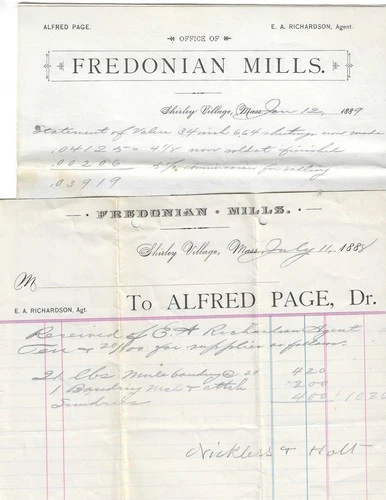 ALFRED PAGE. E. A. RICHARDSON, Agent.
OFFICE OF
FREDONIAN MILLS.
Shirley Village, Mass Jan 12, 1889
Statement of Value 34 inch 6464 sheetings now made
.04125 = 4 1/8 now sold at finished
.00206 5% commission for selling
.03919
FREDONIAN MILLS.
Shirley Village, Mass July 11, 1888
M
E. A. RICHARDSON, Agt. To ALFRED PAGE, Dr.
Received of E A Richardson Agent
Ten & 20/100 for supplies as follows.
21 lbs Mule banding @ 20 420
1 Banding & 200
Sundries 400 1020
Nickless & Holt